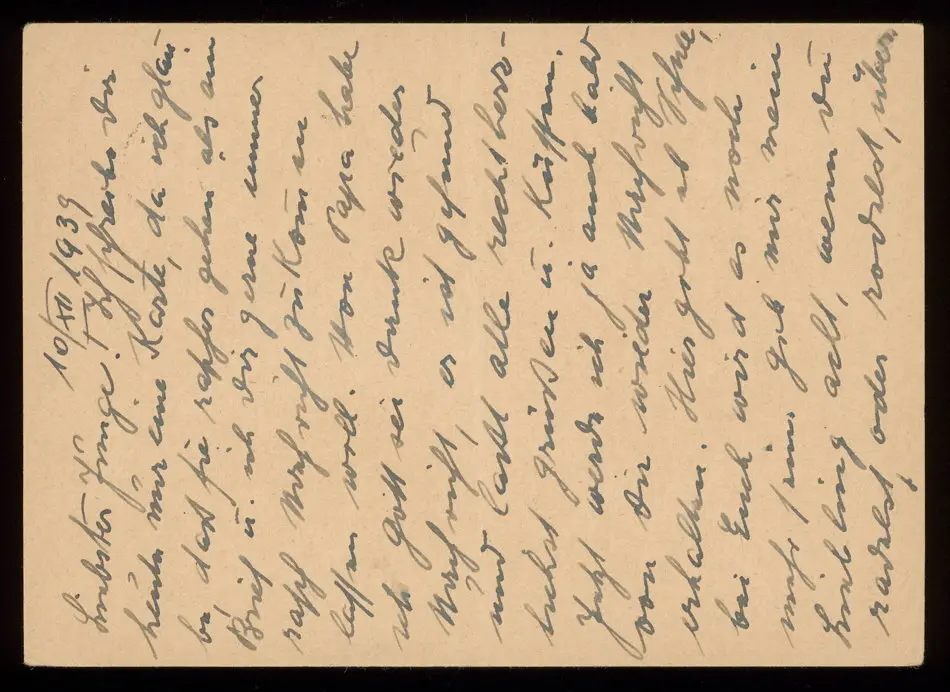 10/XII 1939
Liebster Junge! Ich schreibe dir
heute nur eine Karte, da ich glau-
be, dass sie rascher gehen als ein
Brief u. ich dir gerne immer
rasch Nachricht zukommen
lassen will. Von Papa habe
ich Gott sei Dank wieder
Nachricht, er ist gesund
und lässt alle recht herz-
lichst grüßen u. küssen.
Jetzt werde ich ja auch bald
von dir wieder Nachricht
erhalten. Hier gibt es Schnee,
bei Euch wird es noch
mehr sein. Gib mir mein
Liebling acht, wenn du
radelst oder rodelst, über-